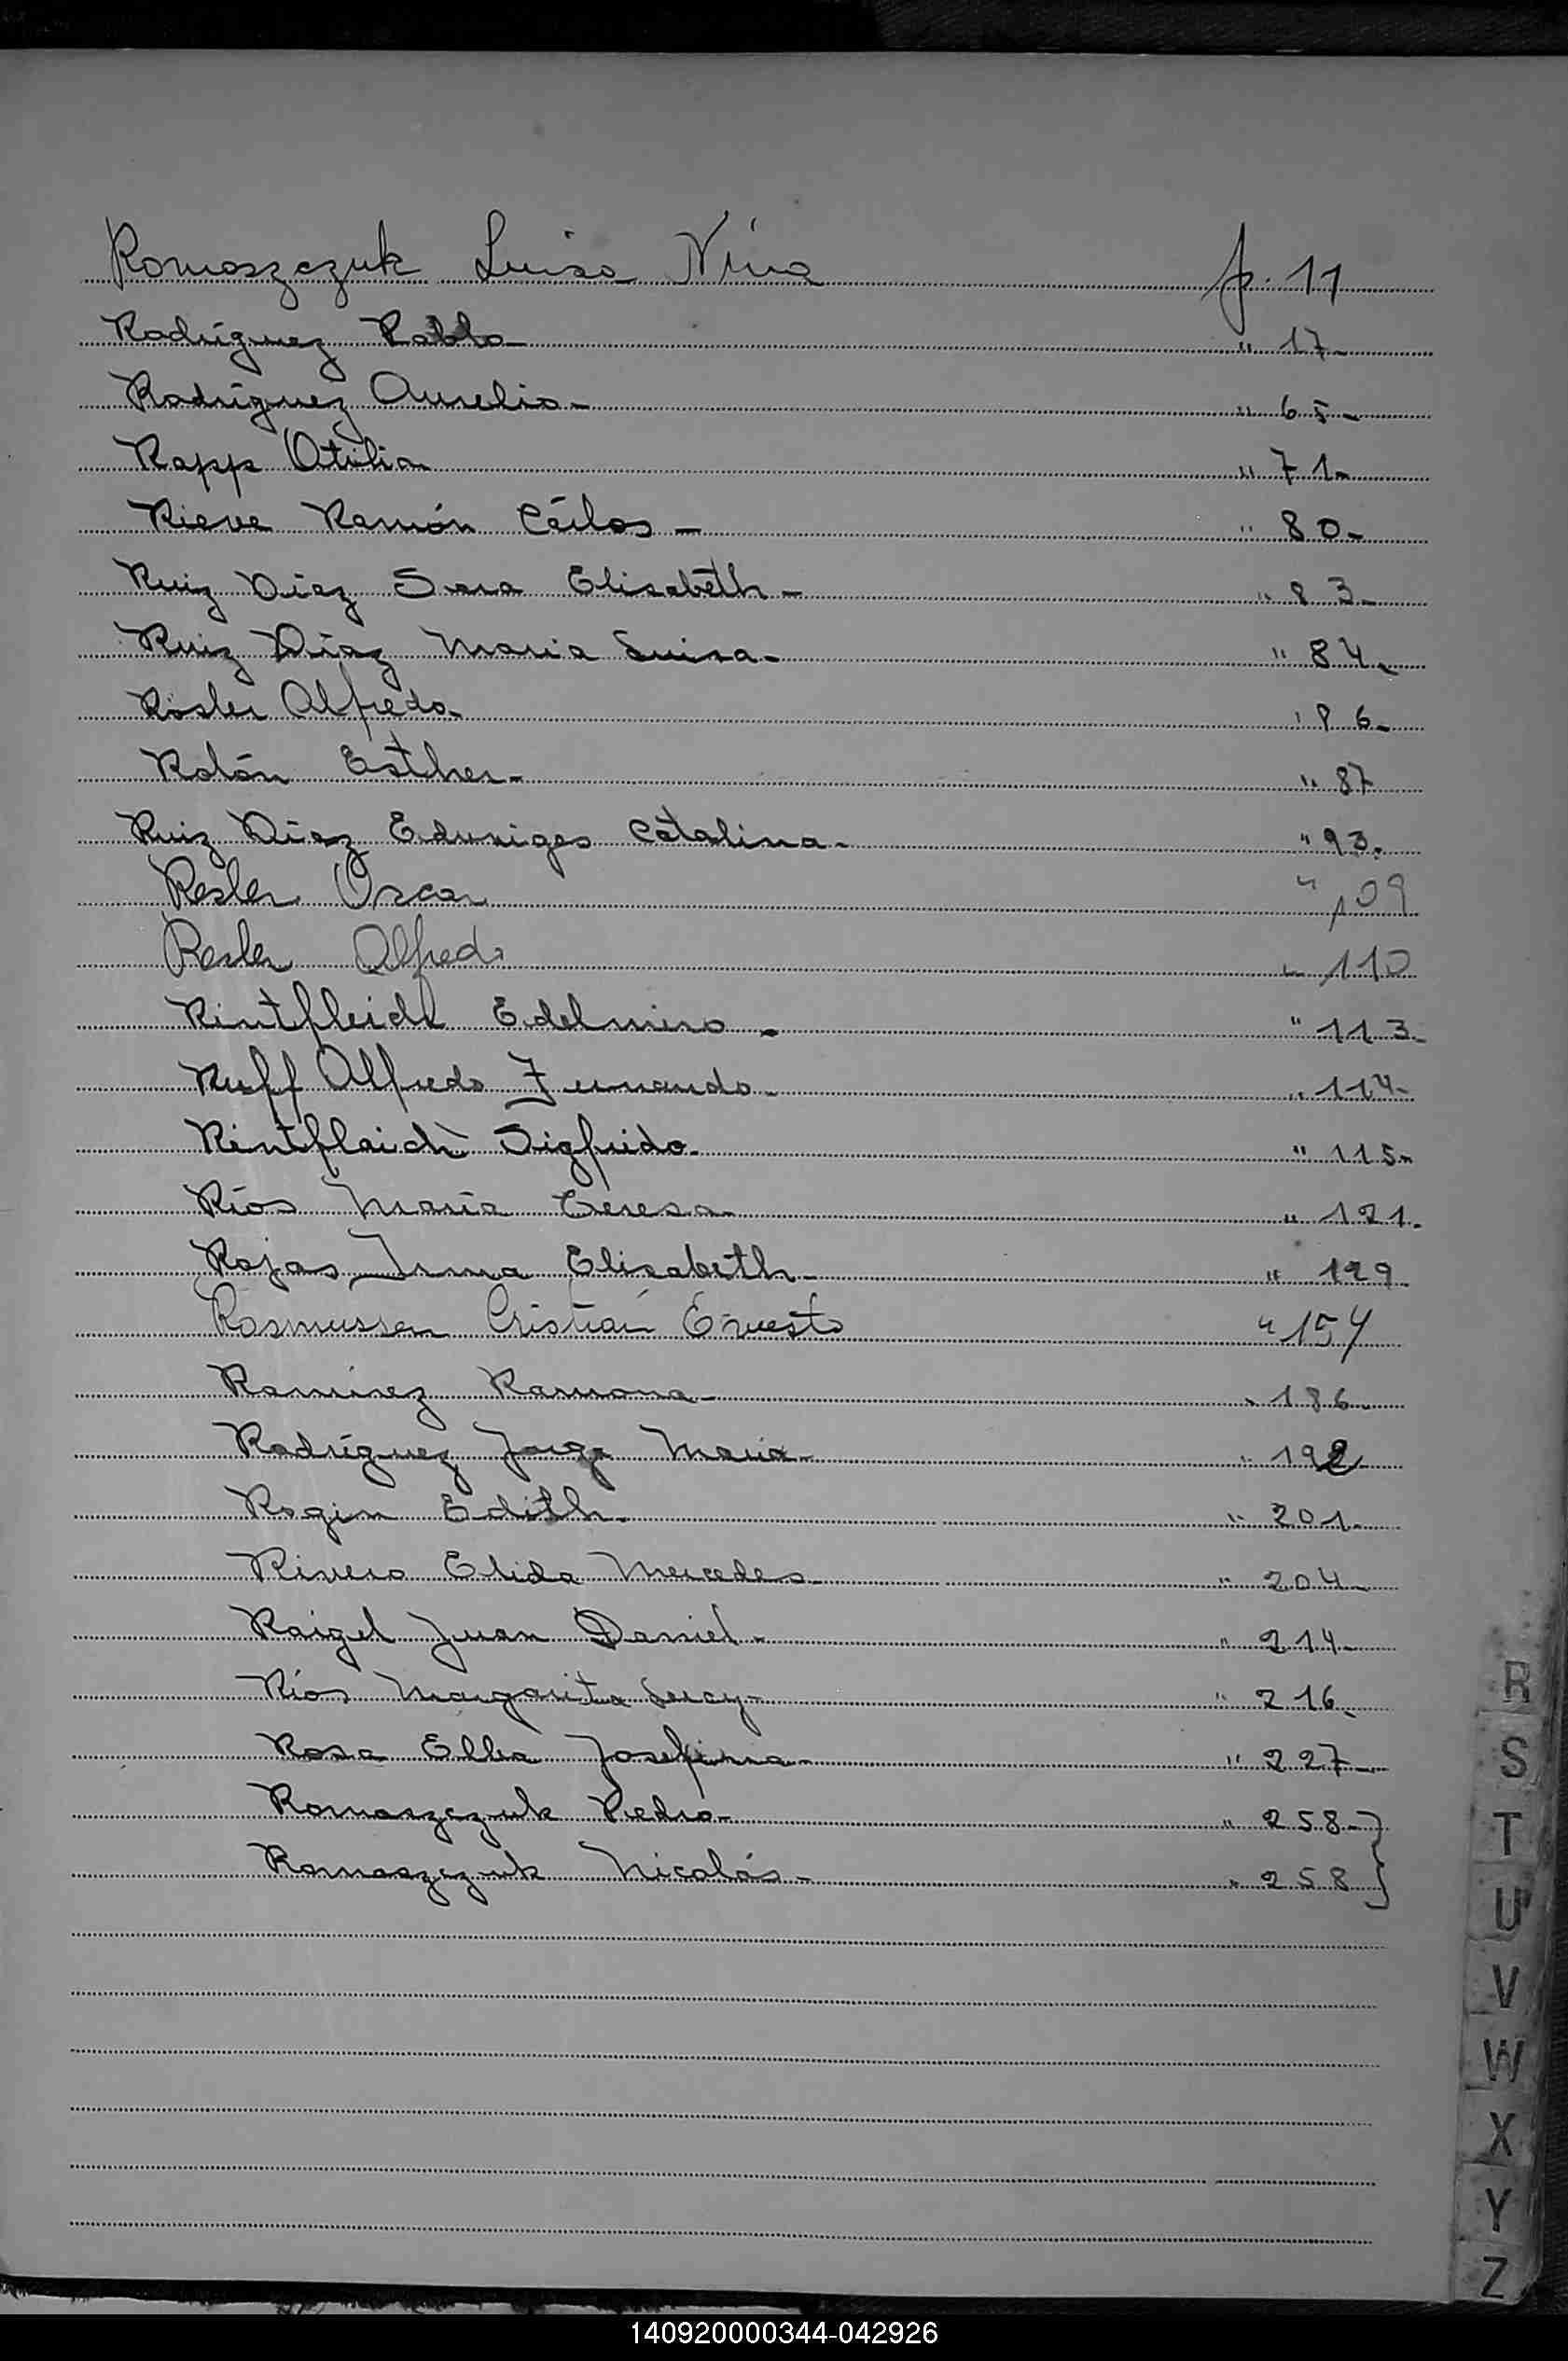 Romaszczuk Luisa Nina f. 11
Rodríguez Pablo " 17-
Rodríguez Aurelio- " 65-
Rapp Otilia " 71-
Rieve Ramón Cárlos- " 80-
Ruiz Díaz Sara Elisabéth- " 83-
Ruiz Díaz Maria Luisa- " 84-
Rösler Alfredo- " 86-
Rolón Esther- " 87
Ruiz Díaz Eduviges Catalina- " 93.
Resler Oscar " 109
Resler Alfredo " 110
Rintfleich Edelmiro- " 113-
Ruff Alfredo Fernando- " 114-
Rintflaich Sigfrido- " 115-
Ríos María Teresa- " 121.
Rojas Irma Elisabeth- " 129-
Rasmussen Cristian Ernesto " 154
Ramírez Ramona- " 186-
Rodríguez Jorge Maria- " 192-
Rogin Edith- " 201-
Rivero Elida Mercedes- " 204-
Raigel Juan Daniel- " 214-
Ríos Margarita Lucy- " 216-
Rosa Elba Josefina- " 227-
Romaszczuk Pedro- " 258- }
Romaszczuk Nicolás- " 258 }
R
S
T
U
V
W
X
Y
Z
140920000344-042926